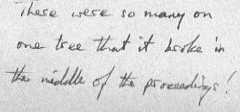 These were so many on
one tree that it broke in
the middle of the proceedings!